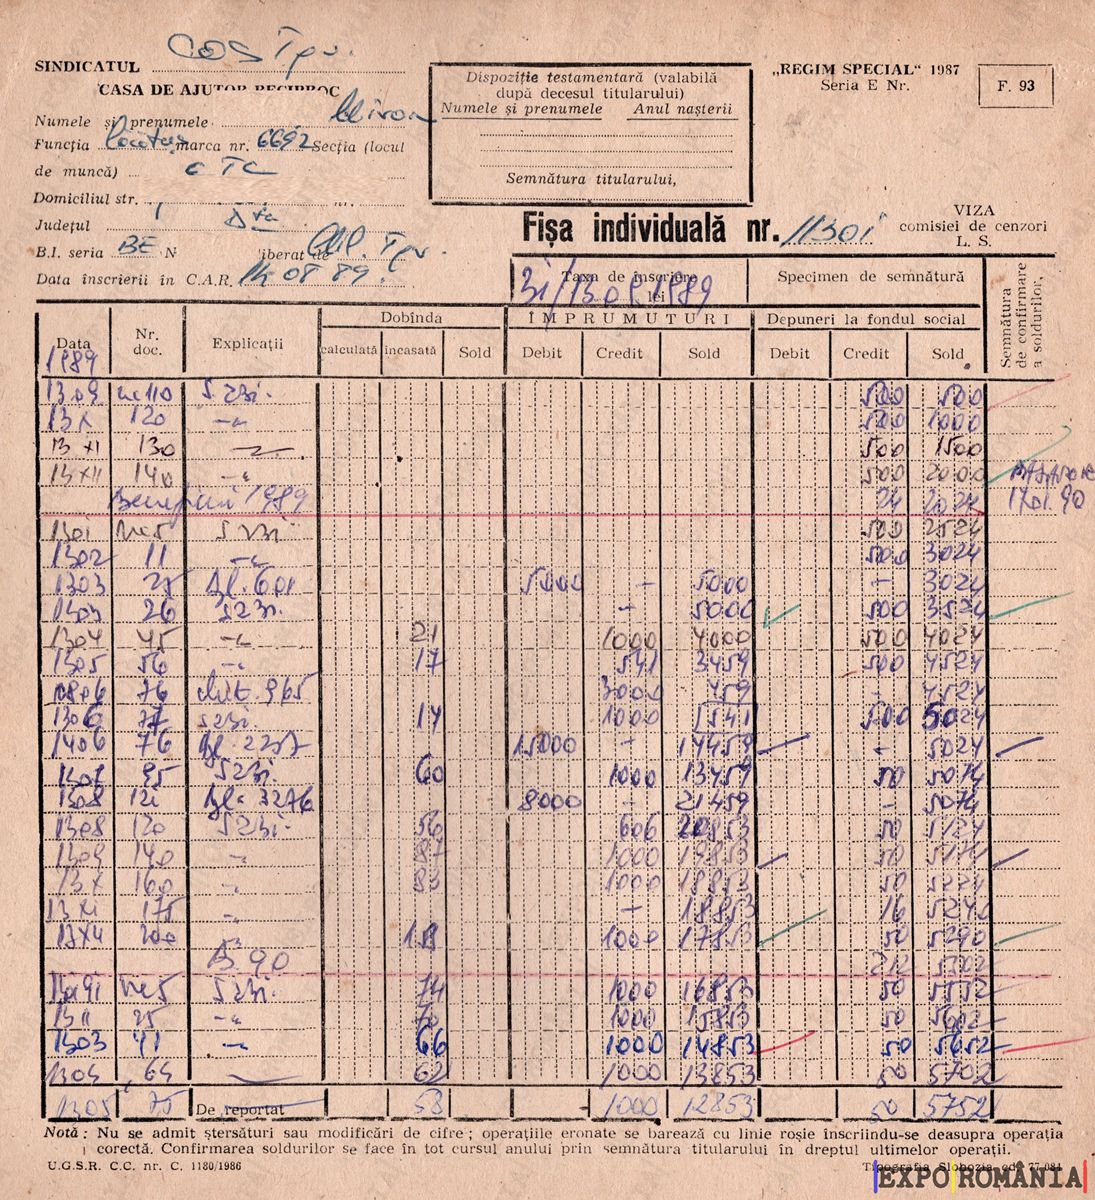 SINDICATUL COS Tgv.
CASA DE AJUTOR RECIPROC
Numele și prenumele Miron
Funcția marca nr. 6692 Secția (locul
de muncă) CTC
Domiciliul str. nr.
Județul D-ța
B.I. seria BE N liberat de Mil. Tgv.
Data înscrierii în C.A.R. 14 08 89.
Dispoziție testamentară (valabilă
după decesul titularului)
Numele și prenumele Anul nașterii
Semnătura titularului,
„REGIM SPECIAL“ 1987
Seria E Nr.
F. 93
Fișa individuală nr. 11301
VIZA
comisiei de cenzori
L. S.
Taxa de înscriere
lei
31/13 09 1989
Specimen de semnătură
Semnătura de confirmare a soldurilor,
Data Nr. doc. Explicații Dobînda ÎMPRUMUTURI Depuneri la fondul social
calculată încasată Sold Debit Credit Sold Debit Credit Sold
1989
1309 110 500 500
13 X 120 -"- 500 1000
13 XI 130 500 1500
13 XII 140 -"- 500 2000
Beneficii 1989 24 2024 17 01 90
1301 5 500 2524
1302 11 -"- 500 3024
1303 25 5000 - 5000 - 3024
1303 26 - 5000 500 3524
1304 45 -"- 21 1000 4000 500 4024
1305 56 -"- 17 541 3459 500 4524
0806 76 965 3000 459 - 4524
1306 77 14 1000 541 500 5024
1406 76 15000 - 14459 - 5024
95 60 1000 13459 50 5074
1308 121 3276 8000 - 21459 - 5074
1308 120 56 606 20853 50 5124
1309 140 -"- 87 1000 19853 50 5174
13 X 160 -"- 83 1000 18853 50 5224
13 XI 175 -"- - 18853 16 5240
200 -"- 1000 17853 50 5290
B 90 212 5502
5 74 1000 16853 50 5552
13 II 25 -"- 70 1000 15853 50 5602
1303 41 -"- 66 1000 14853 50 5652
1304 64 62 1000 13853 50 5702
1305 75 De reportat 58 1000 12853 50 5752
Notă : Nu se admit ștersături sau modificări de cifre ; operațiile eronate se barează cu linie roșie înscriindu-se deasupra operația
corectă. Confirmarea soldurilor se face în tot cursul anului prin semnătura titularului în dreptul ultimelor operații.
U.G.S.R. C.C. nr. C. 1180/1986
Tipografia Slobozia cd. 77 084
EXPO ROMÂNIA